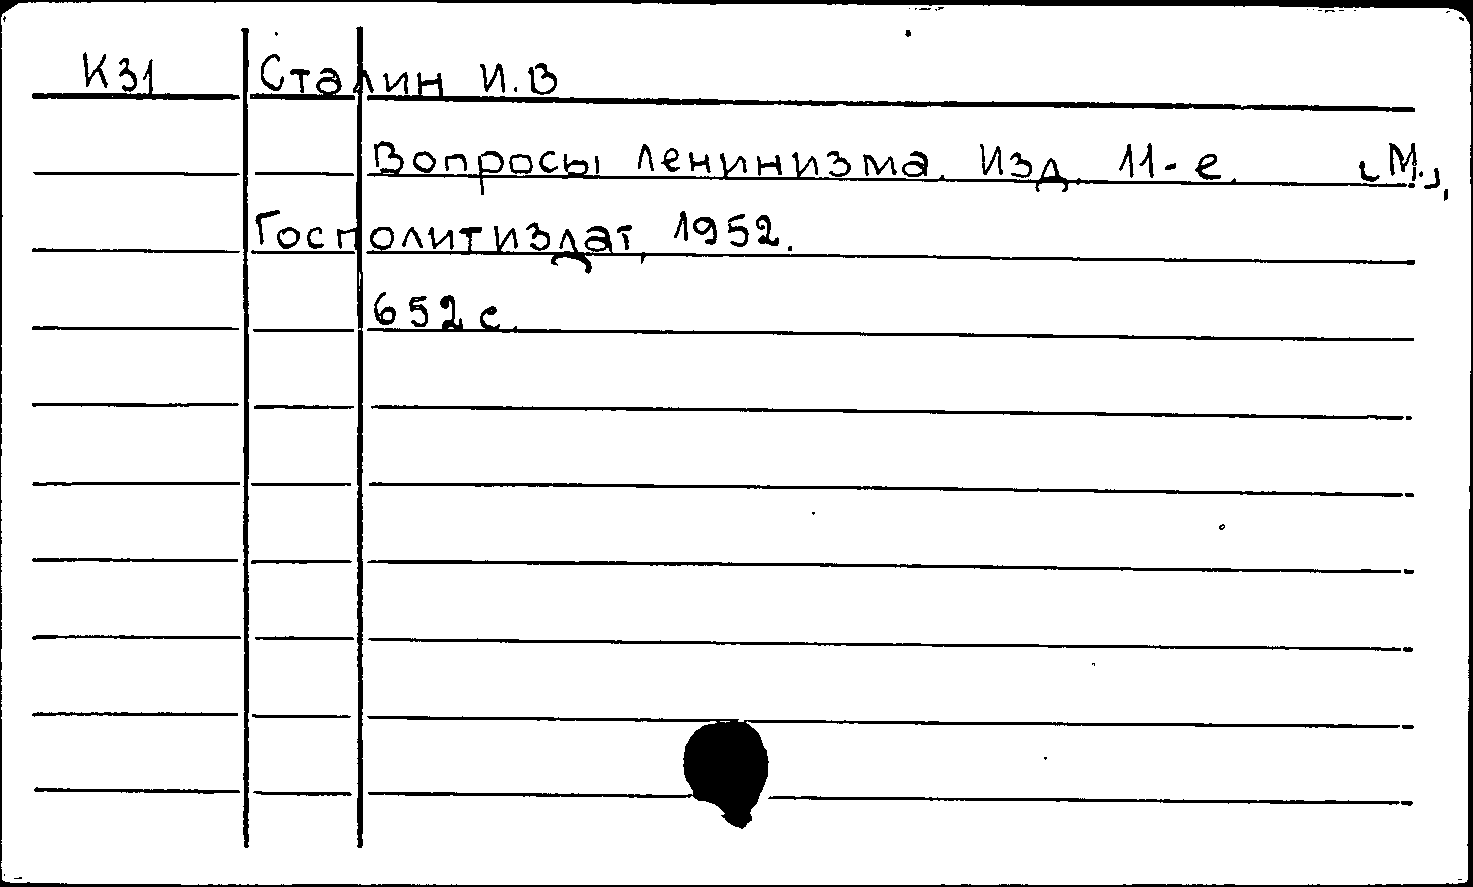 К31 Сталин И.В
Вопросы ленинизма. Изд. 11-е. [М.],
Госполитиздат, 1952.
652 с.